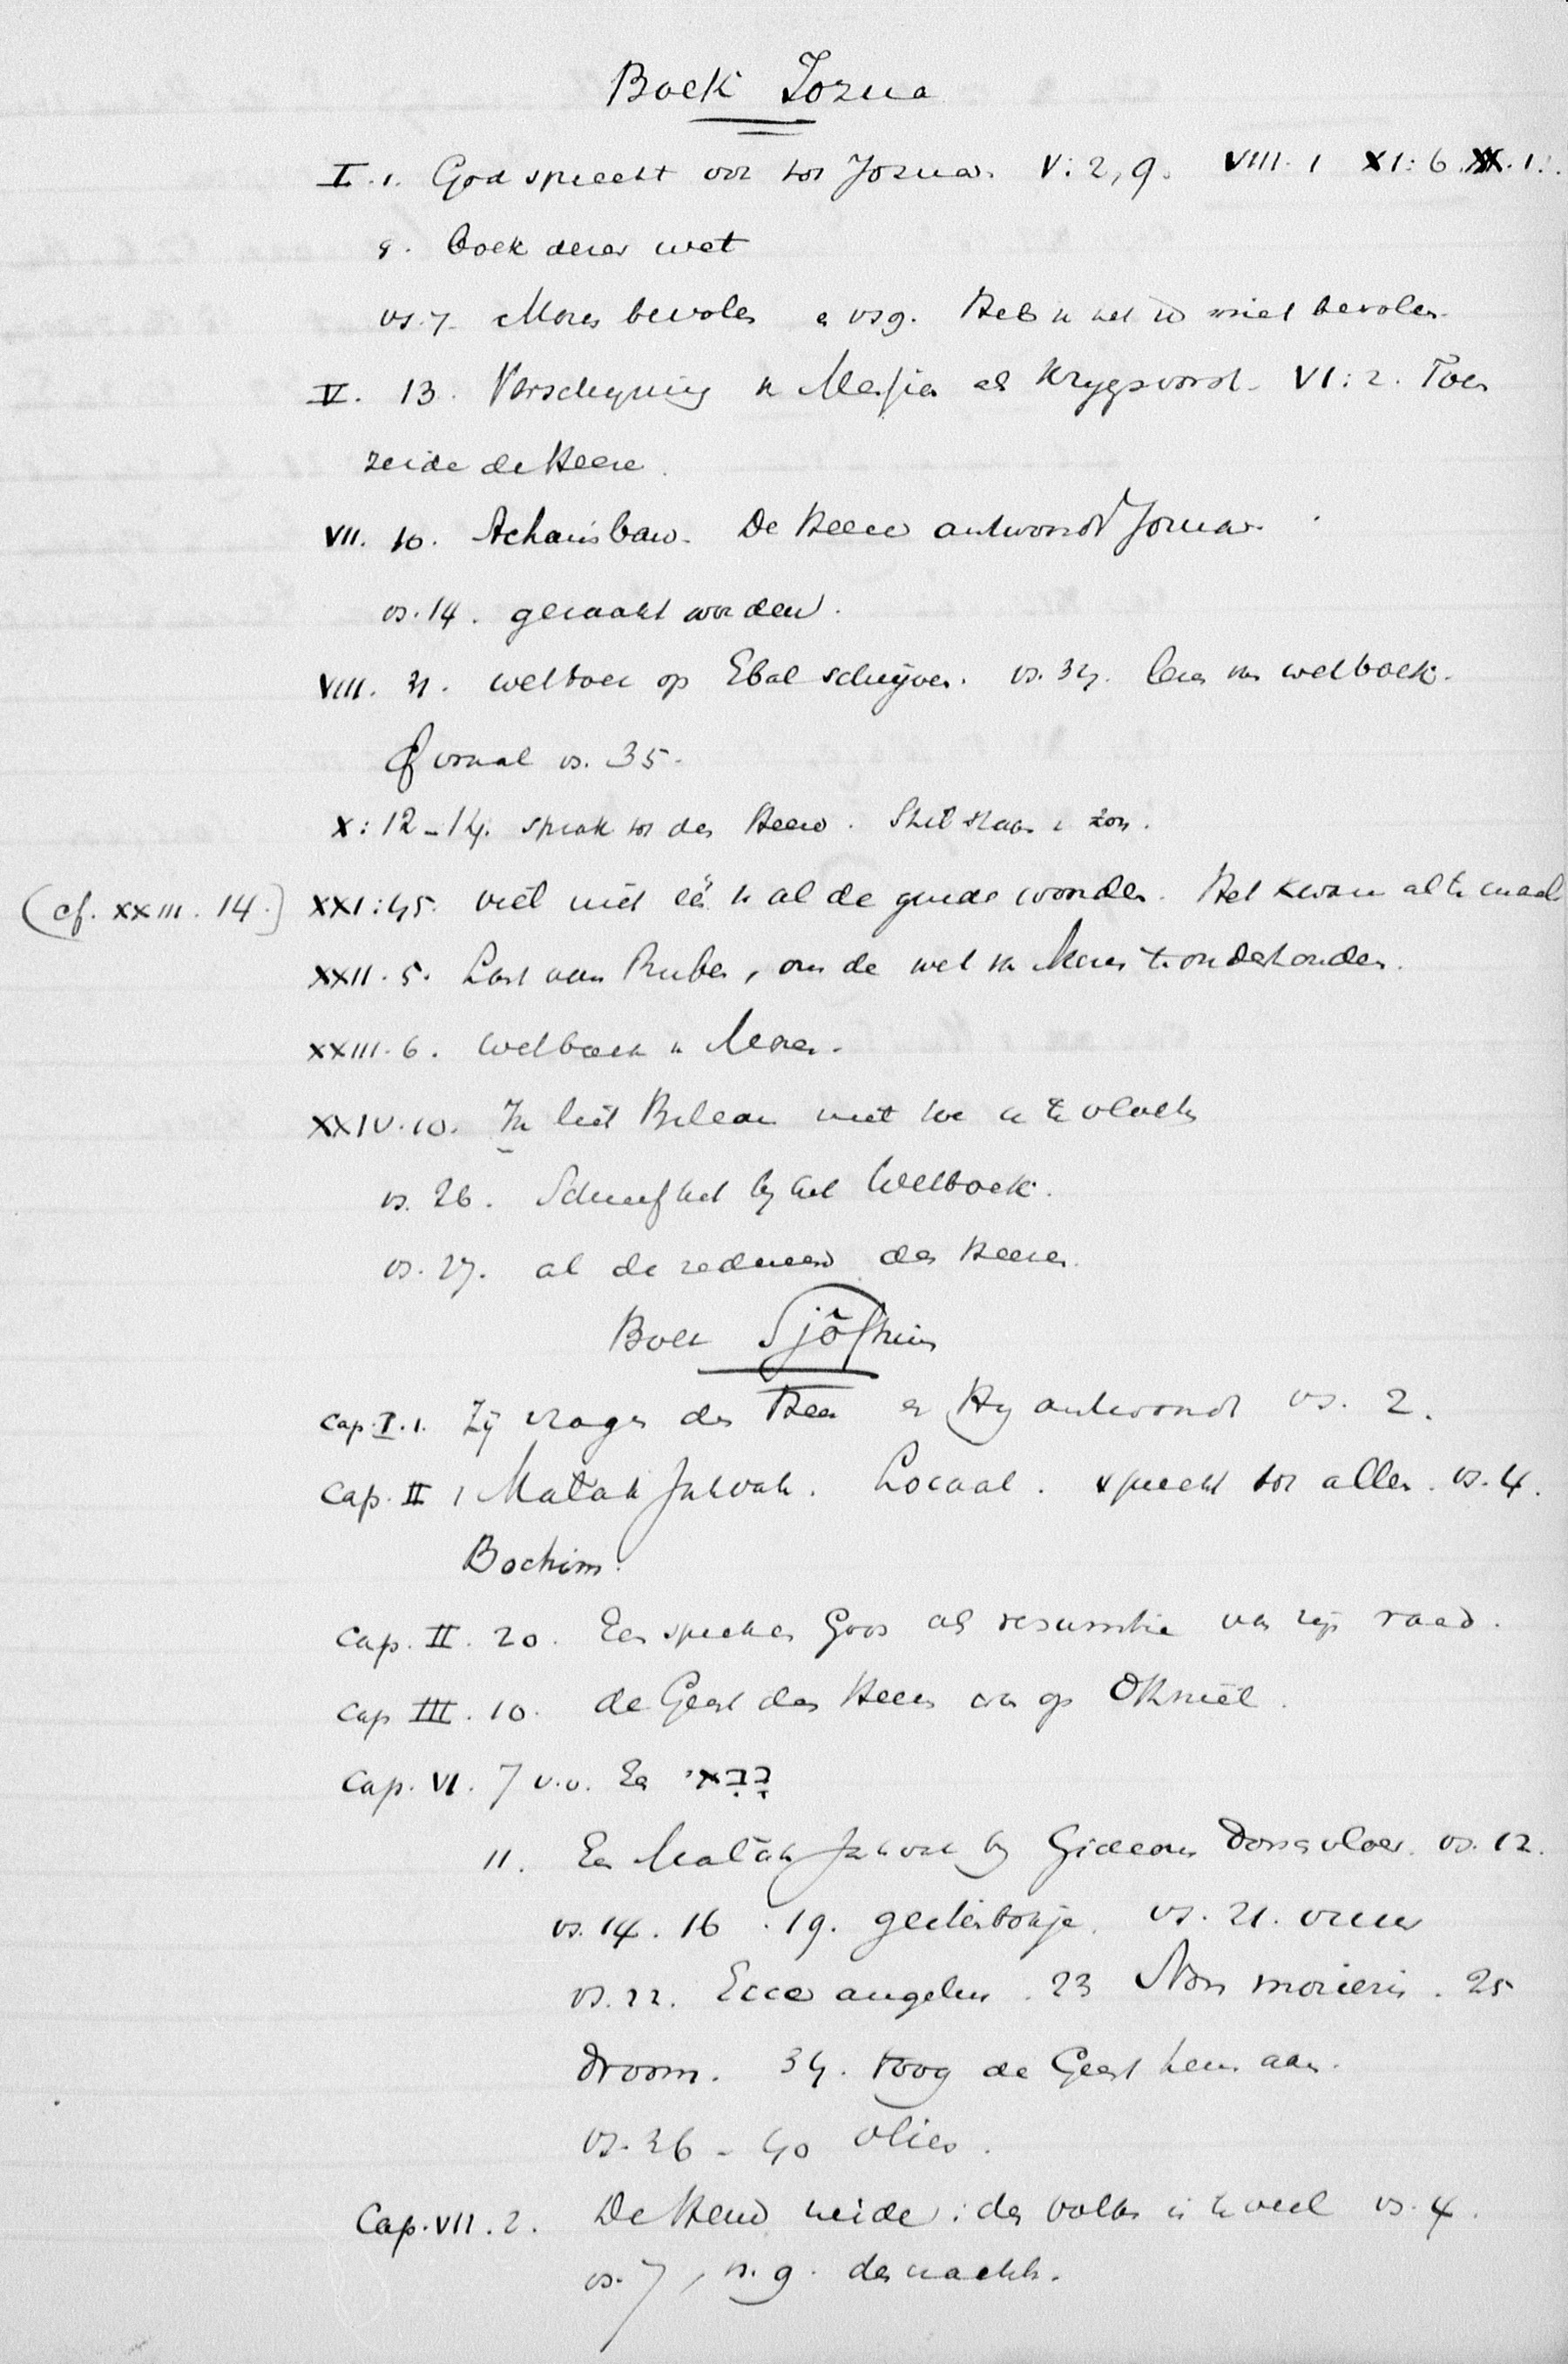 Boek Jozua
I. 1. God spreekt voor tot Jozua. V: 2, 9. VIII. 1 XI: 6. XX. 1.
8. boek dezer wet
vs. 7. Mozes bevolen en vs 9. Heb ik het u niet bevolen.
V. 13. Verschijning v Messias als Krijgsvorst. VI: 2. Toen
zeide de Heere.
VII. 10. Achan's ban. De Heere antwoordt Jozua.
vs. 14. geraakt worden.
VIII. 31. wetboek op Ebal schrijven. vs. 34. lezen van wetboek.
vooral vs. 35.
X: 12-14. sprak tot den Heere. Stil staan d zon.
(cf. XXIII. 14.) XXI: 45. viel niet één v al de goede woorden. Het kwam altemaal
XXII. 5. Last aan Ruben, om de wet van Mozes te onderhouden.
XXIII. 6. wetboek v Mozes.
XXIV. 10. Ik liet Bileam niet toe u te vloeken
vs. 26. Schreef het bij het Wetboek.
vs. 27. al de redenen des Heeren.
Boek Sjôftim
Cap. I. 1. Zij vragen den Heer en Hij antwoordt vs. 2.
Cap. II 1 Malāk Jahvah. Locaal. spreekt tot allen. vs. 4.
Bochim.
Cap. II. 20. Een spreken Gods als resumtie van zijn raad.
Cap III. 10. de Geest des Heeren was op Othniël.
Cap. VI. 7 v.v. Een נביא
11. Een Malāk Jahvah bij Gideons dorschvloer. vs. 12.
vs. 14. 16. 19. geitenbokje. vs. 21. vuur
vs. 22. Ecce angelus. 23 Non morieris. 25
droom. 34. toog de Geest hem aan.
vs. 36 - 40 vlies.
Cap. VII. 2. De Heere zeide: des volks is te veel vs. 4.
vs. 7, vs. 9. des nachts.